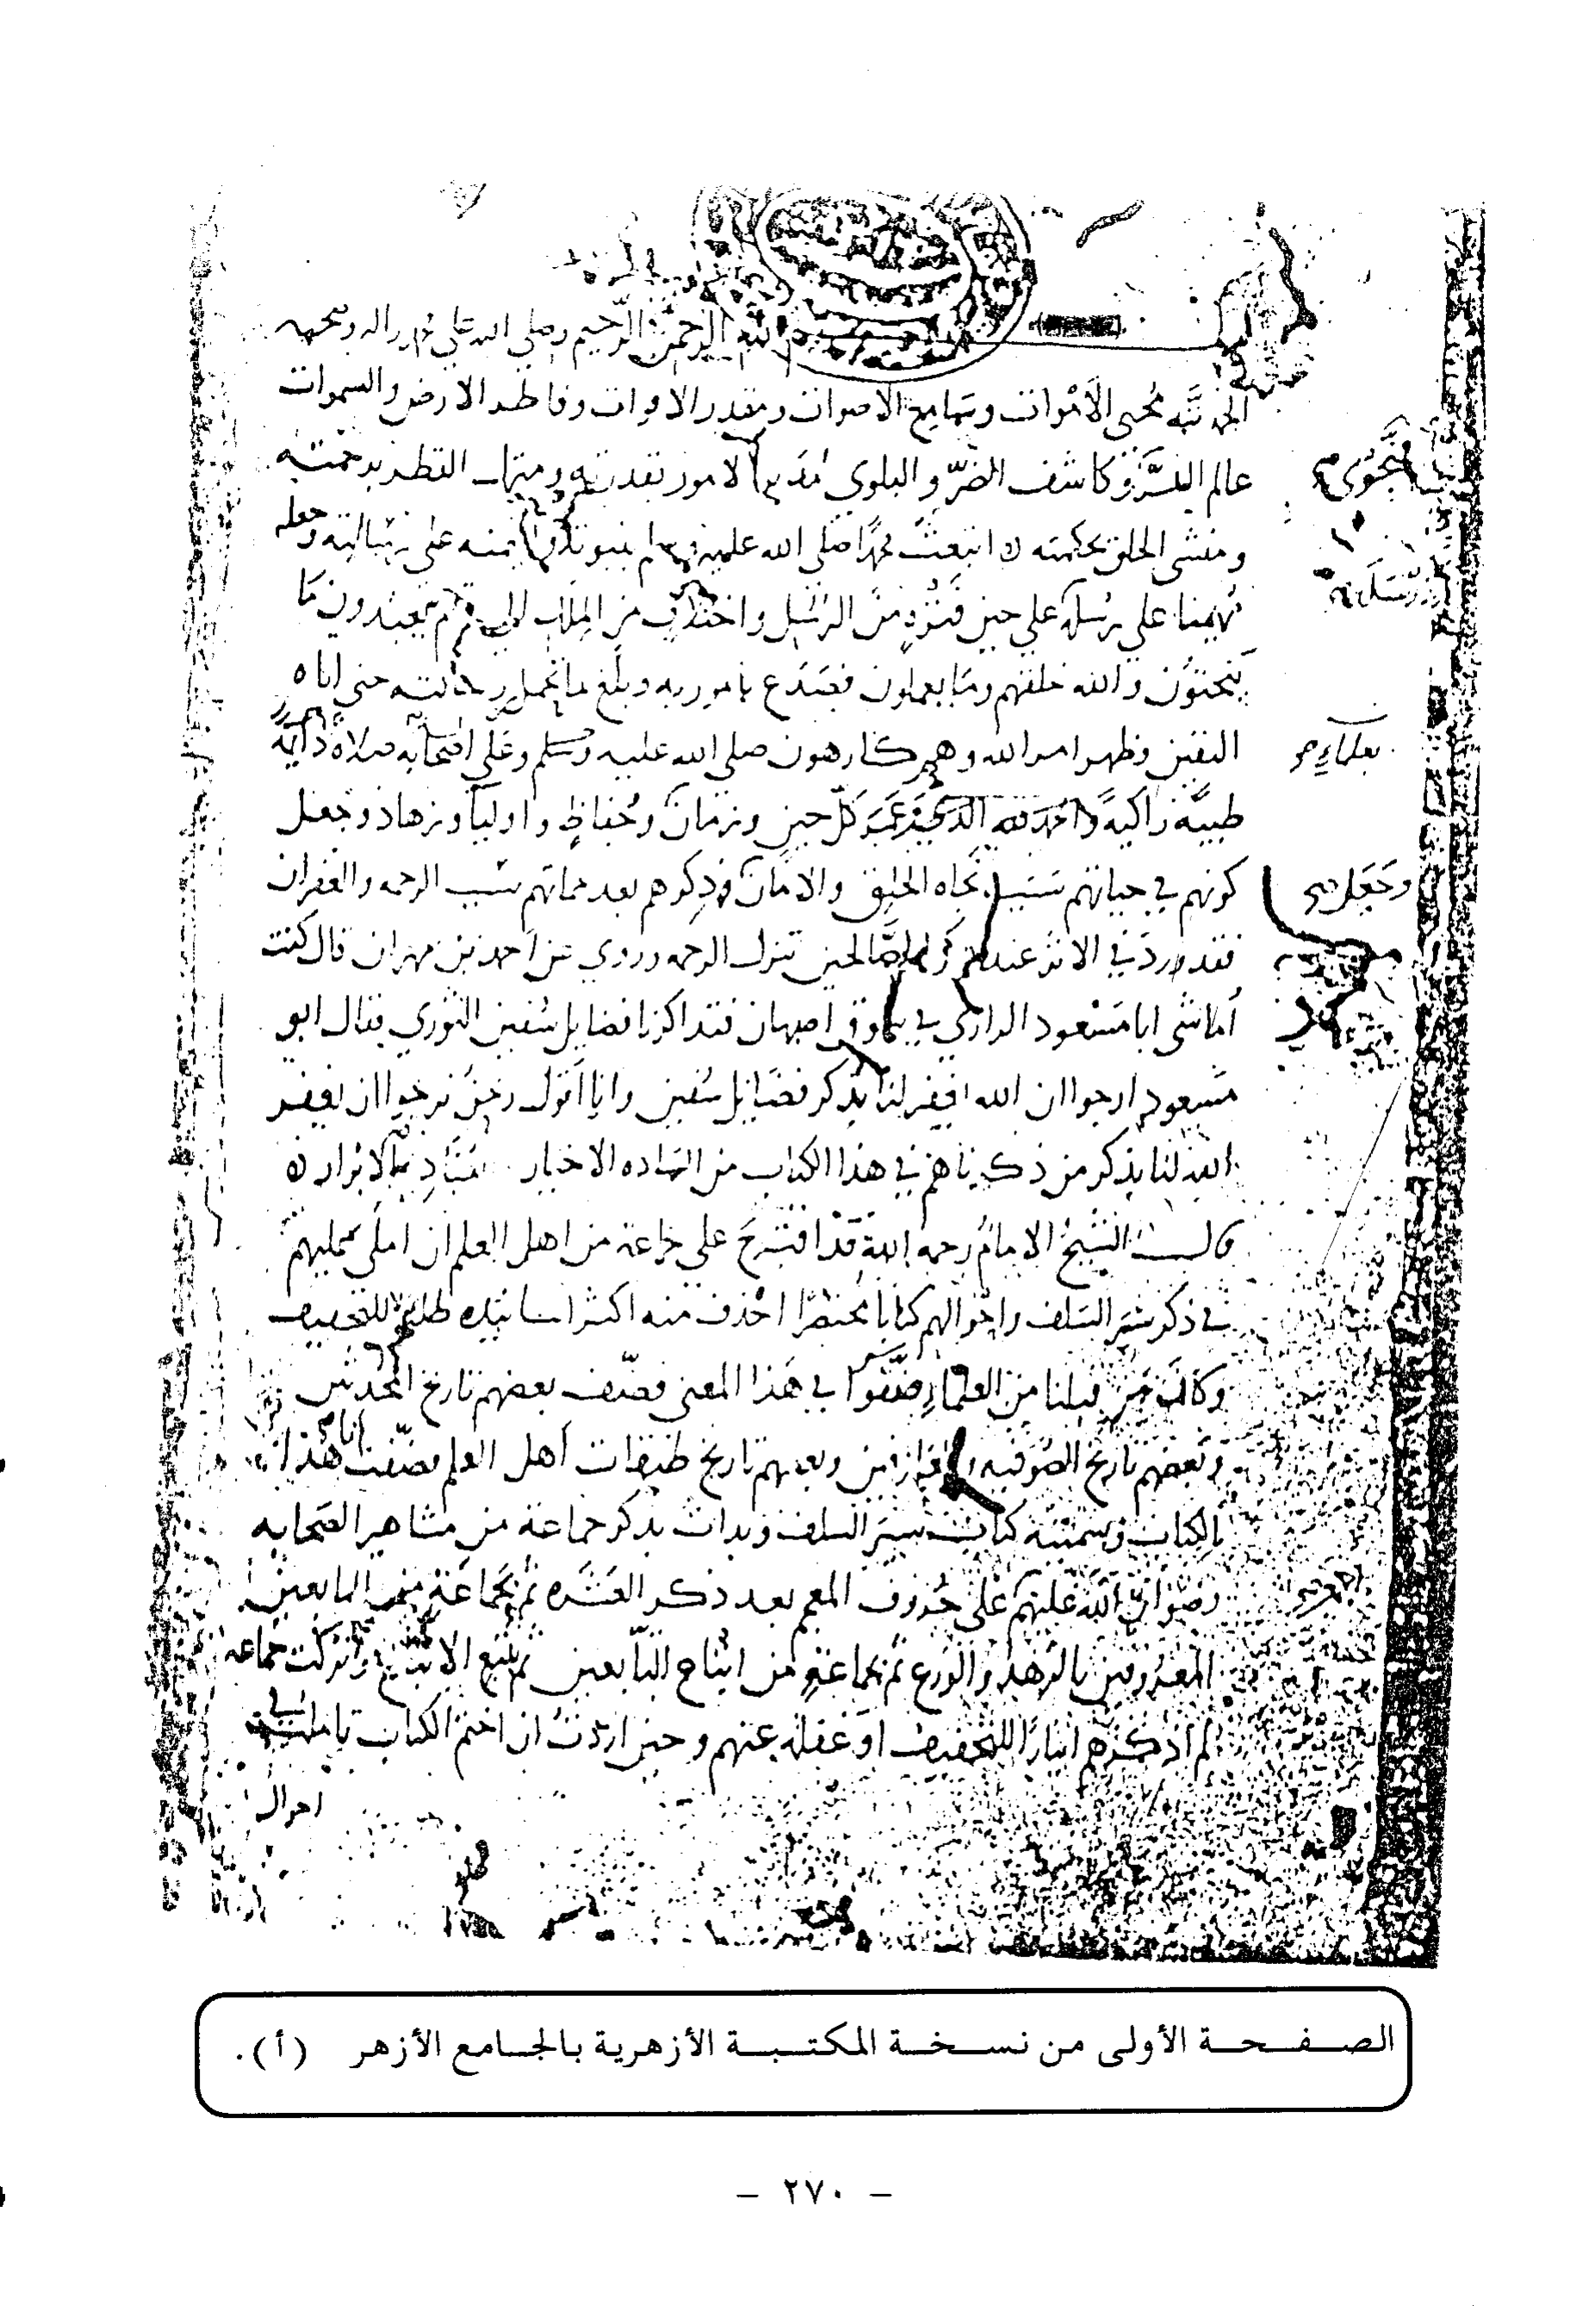 الله الرحمن الرحيم وصلى الله على محمد واله وصحبه
الحمد لله محيى الأموات وسامع الاصوات ومقدر الاقوات وفاطر الارض والسموات
عالم السر وكاشف الضر والبلوى الامور بقدرته ومنزل القطر برحمته
النجوى
ومنشى الخلق بحكمته ابتعث محمدا صلى الله عليه وسلم على رسالته وجعله
مهيمنا على رسله على حين فترة من الرسل واختلاف من الملل الى يعبدون ما
ينحتون والله خلقهم وما يعملون فصدع بامر ربه وبلغ ما تحمل رسالته حتى اتاه
اليقين وظهر امر الله وهم كارهون صلى الله عليه وسلم وعلى اصحابه صلاة دايمة
بعلماء
طيبة زاكية والحمد لله الذى كل حين وزمان وحفاظ واوليا وزهاد وجعل
كونهم فى حياتهم سبب نجاه الخلق والامان وذكرهم بعد مماتهم سبب الرحمه والغفران
وجعل
فقد ورد فى الاثر عند ذكر الصالحين تنزل الرحمه وروي عن احمد بن مهران قال كنت
أماشى ابا مسعود الرازى فى سوق اصبهان فتذاكرنا فضايل سفين الثوري فقال ابو
مسعود ارجوا ان الله لنا بذكر فضايل سفين وانا اقول ونحن نرجوا ان يغفر
الله لنا بذكر من ذكرناهم فى هذا الكتاب من الساده الاخيار الابرار
قال الشيخ الامام رحمه الله قد اقترح على جماعة من اهل العلم ان املى عليهم
فى ذكر سير السلف واحوالهم كتابا مختصرا احذف منه اكثر اسانيده طلبا للتخفيف
وكان من قبلنا من العلماء صنفوا فى هذا المعنى فصنف بعضهم تاريخ المحدثين
وبعضهم تاريخ الصوفيه والعارفين وبعضهم تاريخ طبقات أهل العلم فصنفت انا هذا
الكتاب وسميته كتاب سير السلف وبدات بذكر جماعة من مشاهير الصحابه
رضوان الله عليهم على حروف المعجم بعد ذكر العشره ثم بجماعة من التابعين
اجمعين
المعروفين بالزهد والورع ثم بجماعة من اتباع التابعين ثم تبع الاتباع وتركت جماعه
لم اذكرهم ايثارا للتخفيف او غفلة عنهم وحين اردت ان اختم الكتاب تاملت فى
احوال
الصفحة الأولى من نسخة المكتبة الأزهرية بالجامع الأزهر (أ).
- ٢٧٠ -